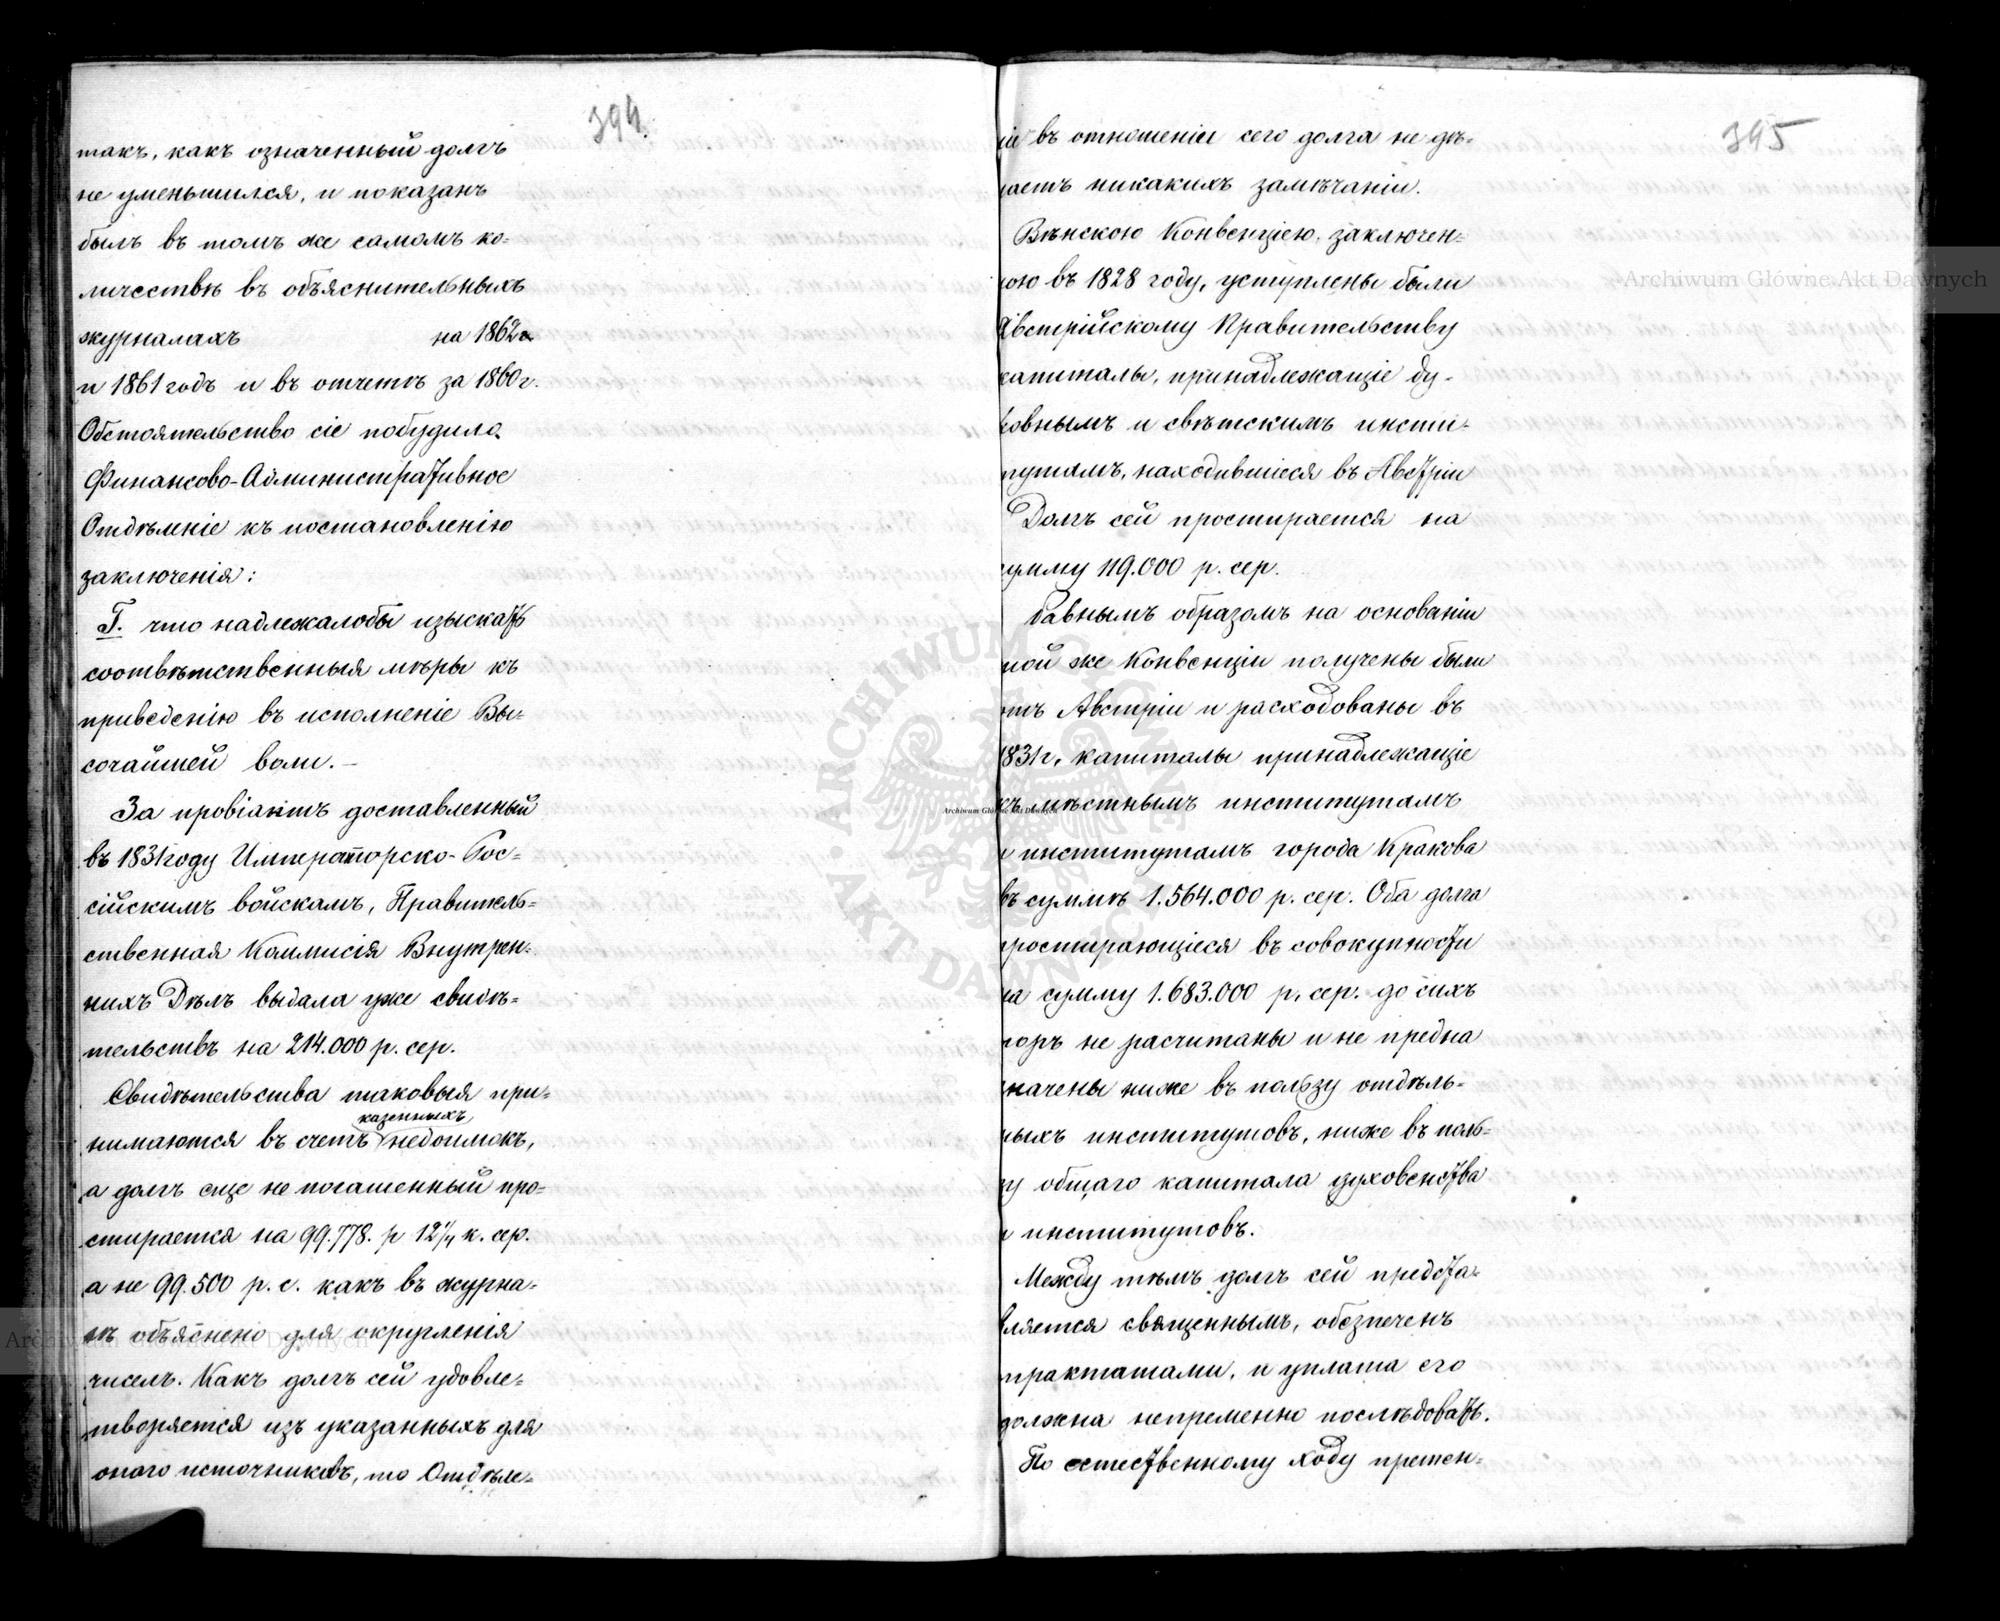 394.
такъ, какъ означенный долгъ
не уменьшился, и показанъ
былъ въ томъ же самомъ ко-
личествѣ въ объяснительныхъ
журналахъ на 1862 г.
и 1861 годъ и въ отчетѣ за 1860 г.
Обстоятельство сіе побудило
Финансово-Административное
Отдѣленіе къ постановленію
заключенія:
I. что надлежалобы изыскать
соотвѣтственныя мѣры къ
приведенію въ исполненіе Вы-
сочайшей воли. —
За провіантъ доставленный
въ 1831 году Императорско-Рос-
сійскимъ войскамъ, Правитель-
ственная Коммисія Внутрен-
нихъ Дѣлъ выдала уже свидѣ-
тельствъ на 214.000 р. сер.
Свидѣтельства таковыя при-
казенныхъ
нимаются въ счетъ недоимокъ,
а долгъ еще не погашенный про-
стирается на 99.778. р 12 1/4 к. сер.
а не 99.500 р. с. какъ въ журна-
лѣ объяснено для округленія
чиселъ. Какъ долгъ сей удовле-
творяется изъ указанныхъ для
онаго источниковъ, то Отдѣле-
395
ніе въ отношеніи сего долга не дѣ-
лаетъ никакихъ замѣчаніи.
Вѣнскою Конвенціею, заключен-
ною въ 1828 году, уступлены были
Австрійскому Правительству
капиталы, принадлежащіе ду-
ховнымъ и свѣтскимъ инсти-
тутамъ, находившіеся въ Австріи
Долгъ сей простирается на
сумму 119.000 р. сер.
Равнымъ образомъ на основаніи
той же Конвенціи получены были
отъ Австріи и расходованы въ
1831 г. капиталы принадлежащіе
къ мѣстнымъ институтамъ
и институтамъ города Кракова
въ суммѣ 1.564.000 р. сер. Оба долга
простирающіеся въ совокупности
на сумму 1.683.000 р. сер. до сихъ
поръ не расчитаны и не предна
значены ниже въ пользу отдѣль-
ныхъ институтовъ, ниже въ поль-
зу общаго капитала духовенства
и институтовъ.
Между тѣмъ долгъ сей предста-
вляется священнымъ, обезпеченъ
трактатами, и уплата его
должна непременно послѣдовать.
По естественному ходу претен-
Archiwum Główne Akt Dawnych
Archiwum Główne Akt Dawnych
Archiwum Główne Akt Dawnych
ARCHIWUM GŁÓWNE AKT DAWNYCH